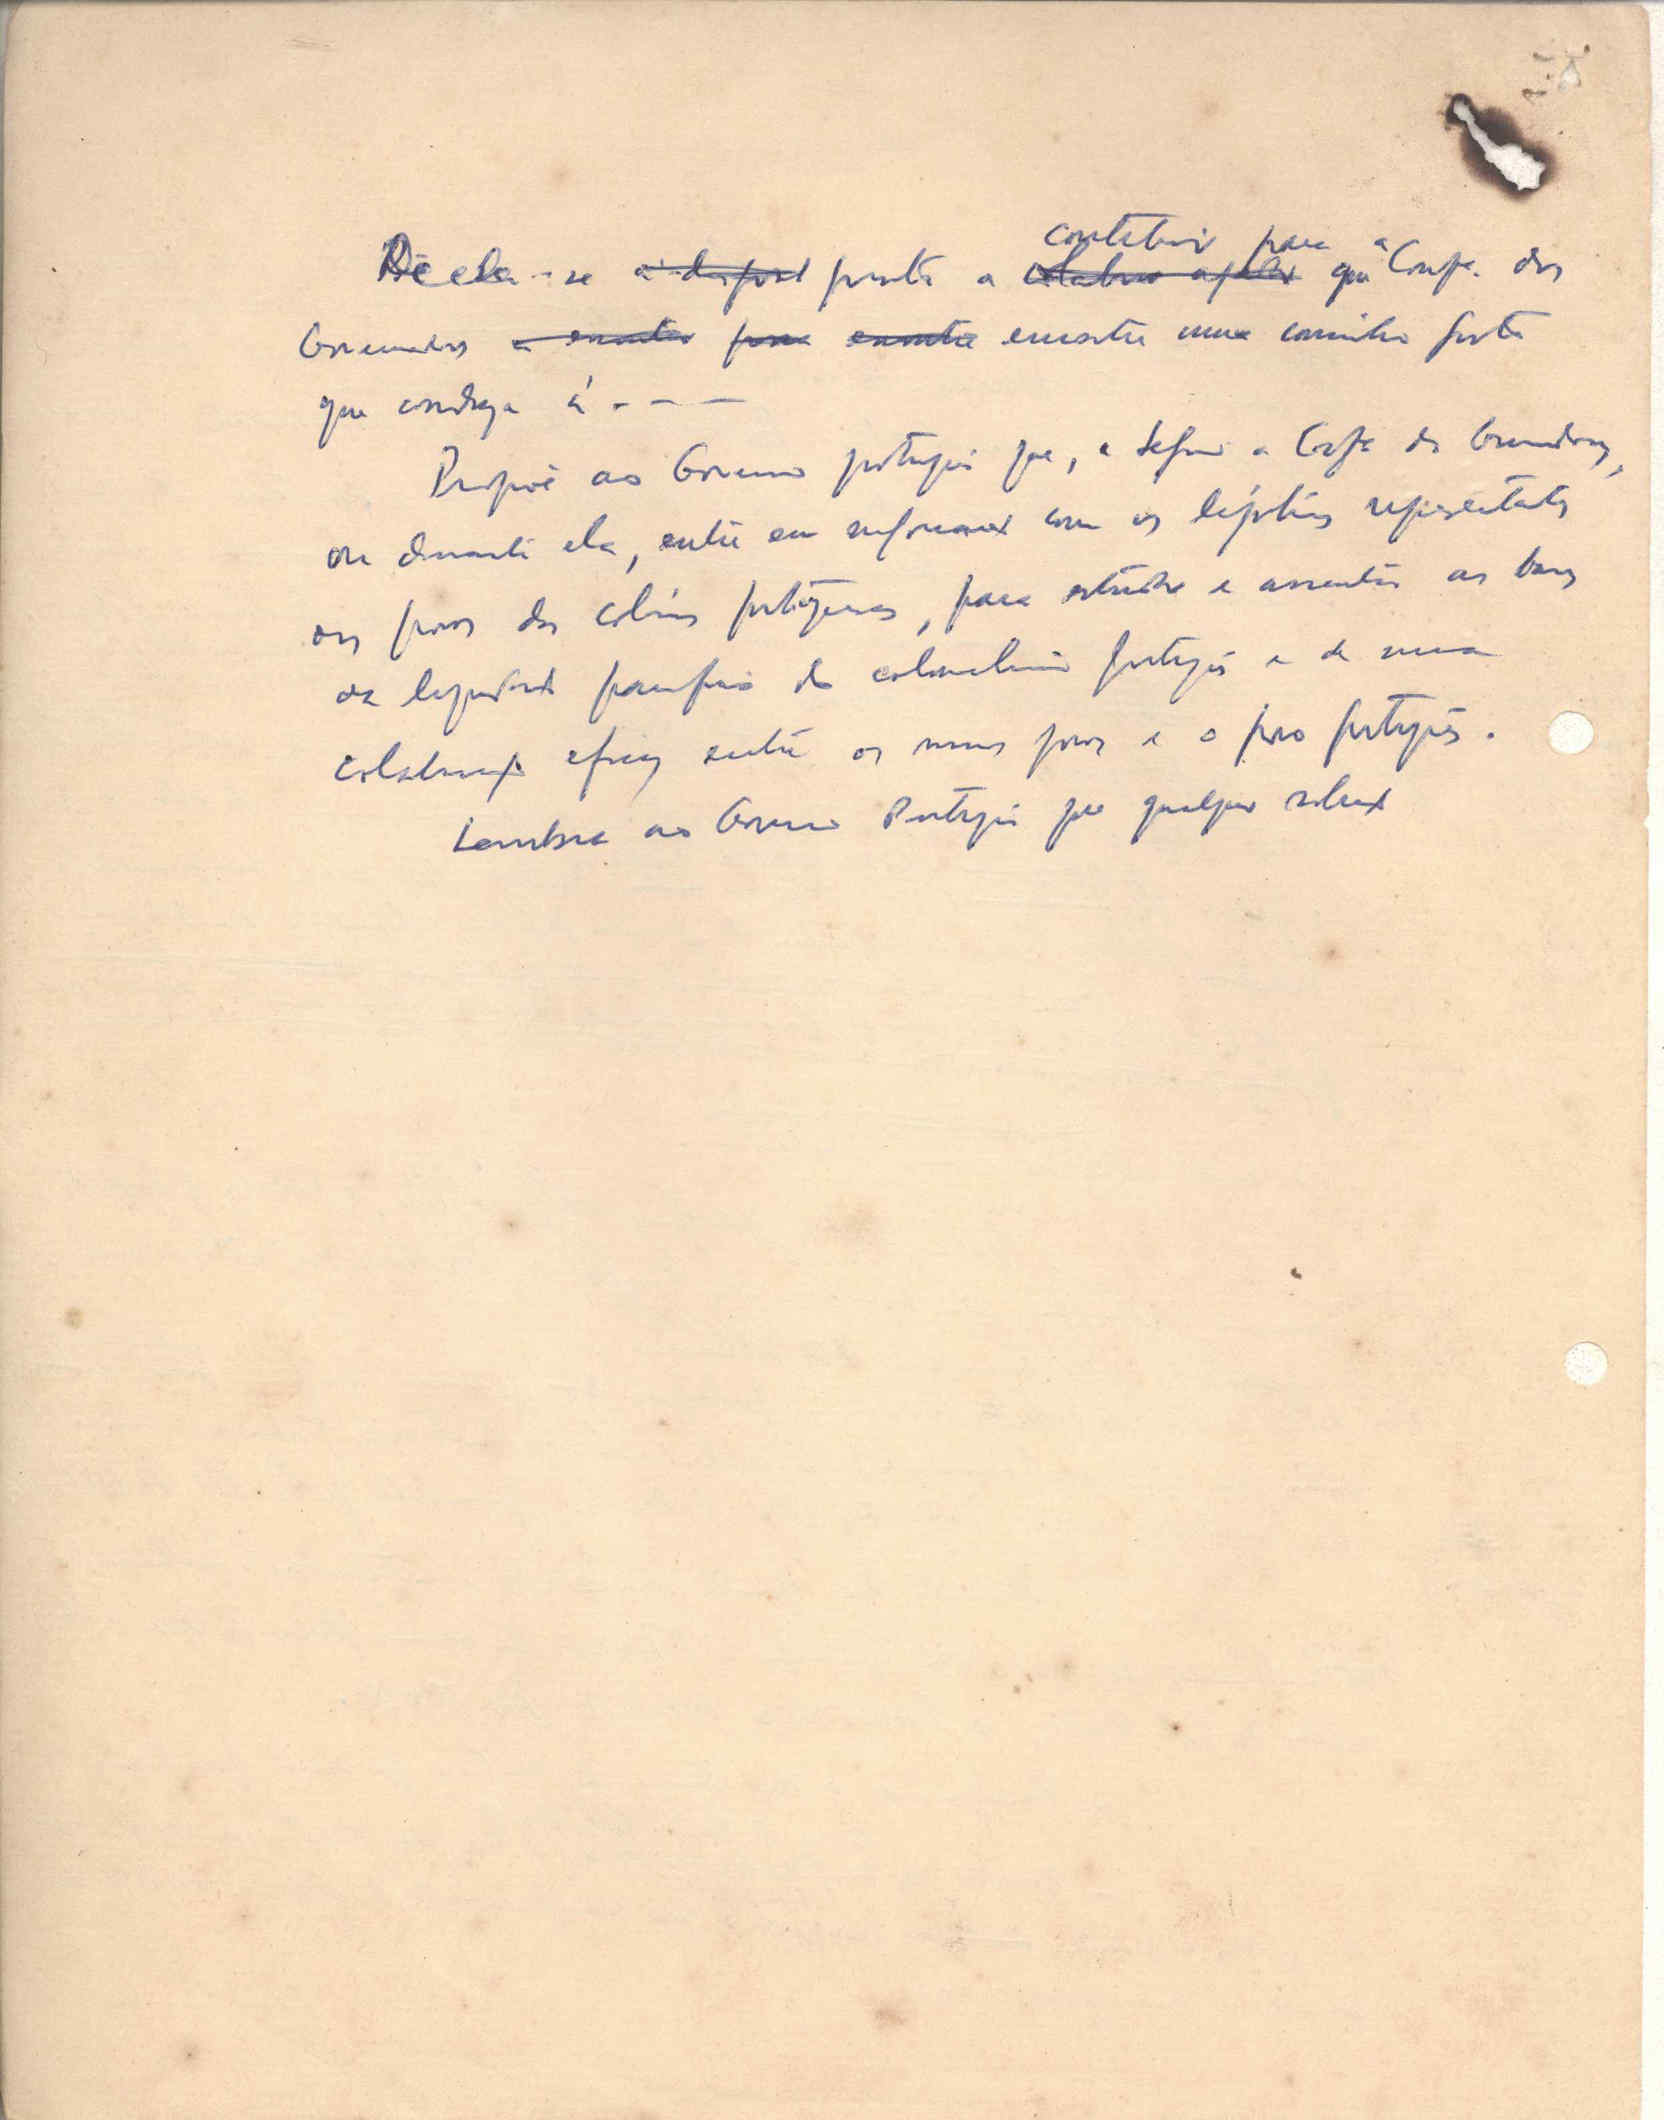 contribuir para a
Declara-se à dispos pronta a que Confa. dos
Governadores a encontrar para encontre encontre um caminho justo
que conduza à - - -
Propõe ao Governo português que, a seguir a Confa dos Governadores,
ou durante ela, entre em com os legítimos representantes
dos povos das colónias portuguesas, para estudar e assentar as bases
da liquidação pacífica do colonialismo português e de uma
colaboração eficaz entre os nossos povos e o povo português.
Lembra ao Governo Português que qualquer solução